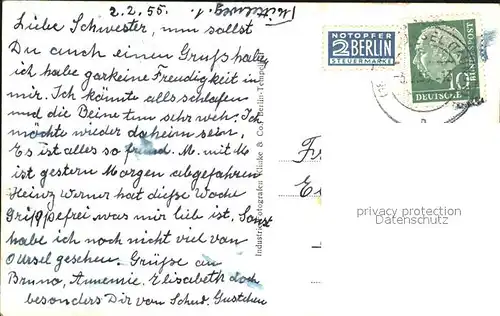 2.2.55. Mittwoch.
Liebe Schwester, nun sollst
Du auch einen Gruß haben
ich habe gar keine Freudigkeit in
mir. Ich könnte alls schlafen
und die Beine tun sehr weh. Ich
möchte wieder daheim sein,
Es ist alles so fremd. M. mit M.
ist gestern Morgen abgefahren
Heinz Werner hat dieße Woche
Grippefrei was mir lieb ist, Sonst
habe ich noch nicht viel von
Oursel gesehen. Grüße an
Bruno, Annemie, Elisabeth doch
besonders Dir von Schw. Gustchen
Industrie-Fotografen Klinke & Co., Berlin-Tempelh
NOTOPFER
2 BERLIN
STEUERMARKE
10
DEUTSCHE
BUNDESPOST
privacy protection
Datenschutz